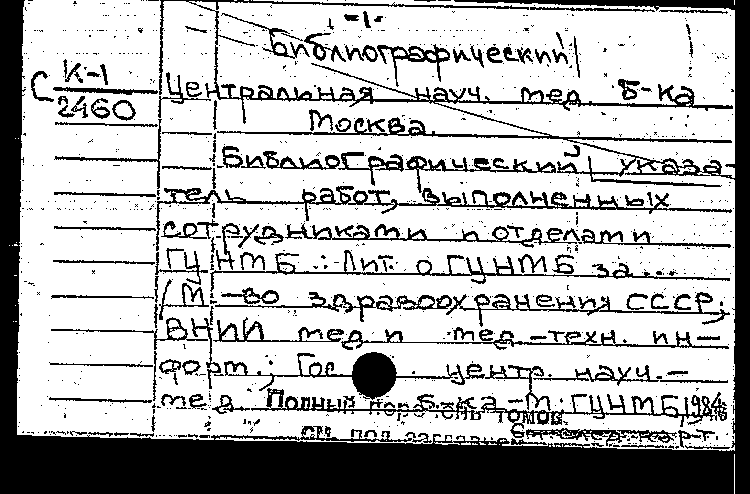 -1-
Библиографический
С К-1
2460
Центральная науч. мед. Б-ка
Москва.
Библиографический указа-
тель работ, выполненных
сотрудниками и отделами
ГЦНМБ : Лит. о ГЦНМБ за...
/М-во здравоохранения СССР;
ВНИИ мед и мед.-техн. ин-
форм.; Гос. центр. науч.-
мед. б-ка.-М.:ГЦНМБ, 1984
Полный перечень томов
см. под заглавием